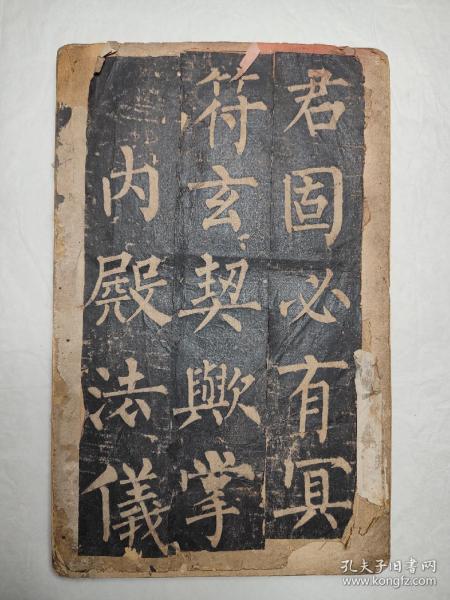 君固必有冥
符玄契歟掌
内殿法儀
孔夫子旧书网
www.kongfz.com